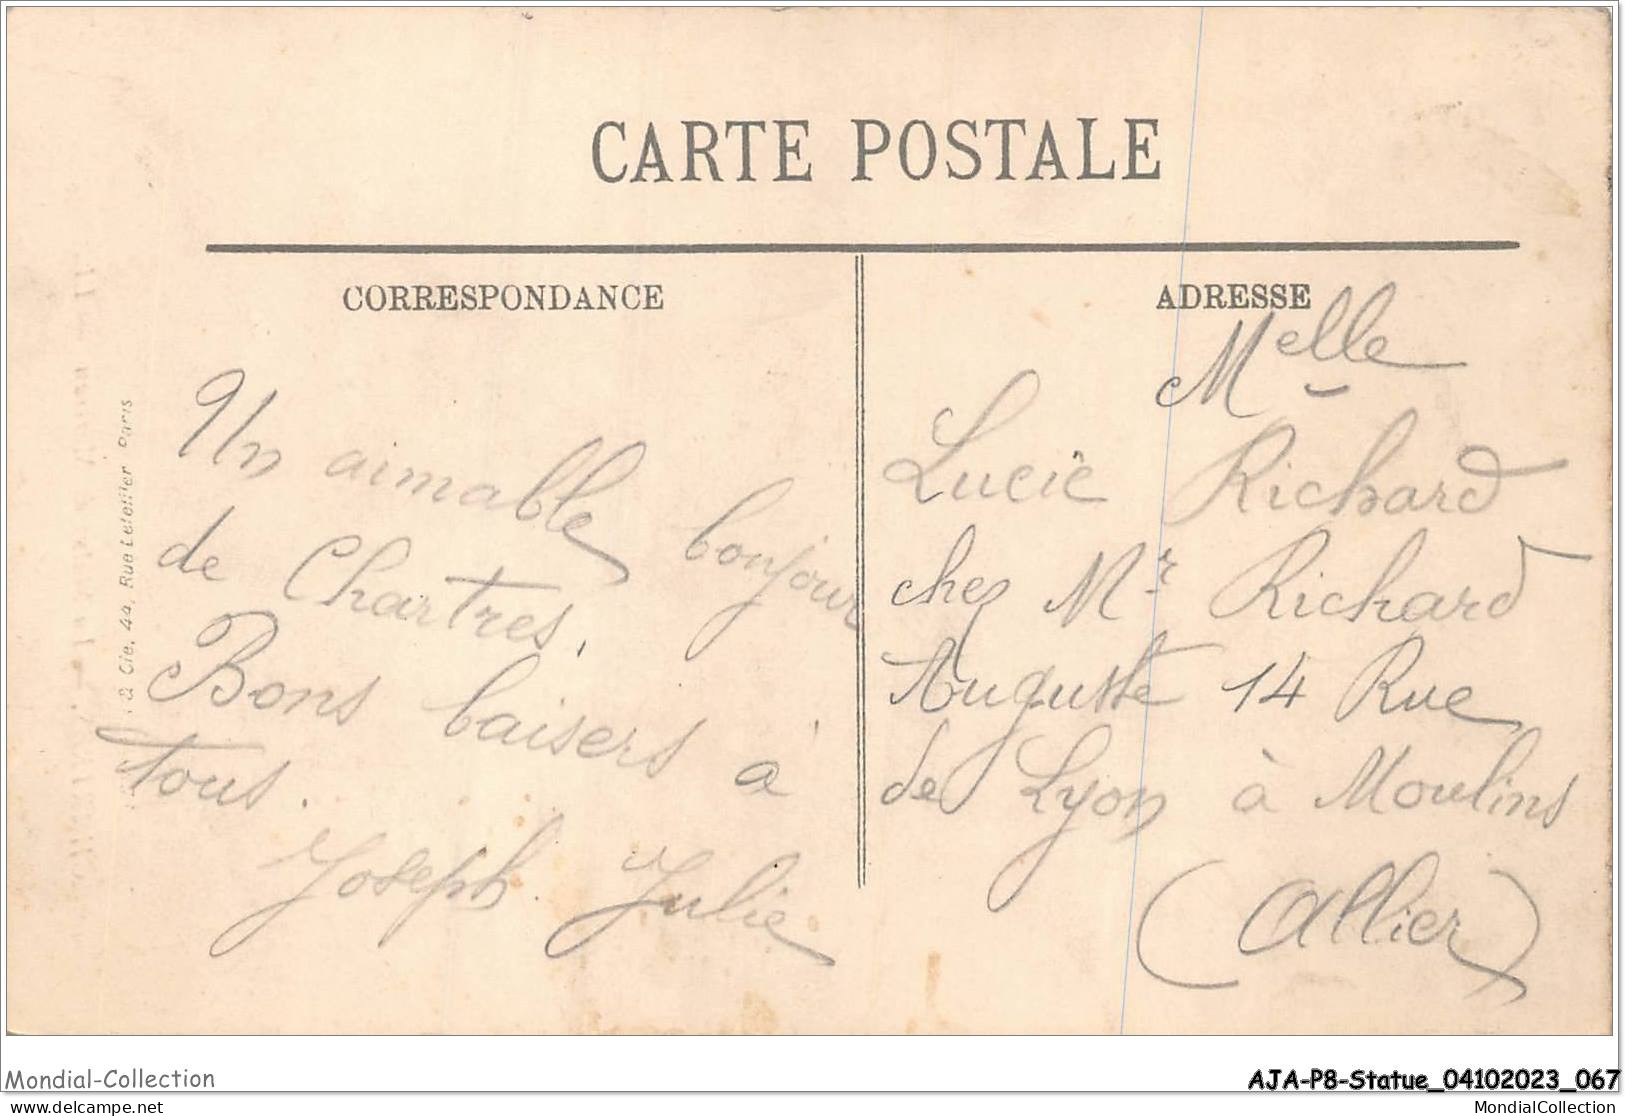 CARTE POSTALE
CORRESPONDANCE
Un aimable bonjour
de Chartres.
Bons baisers à
tous.
Joseph. Julie
ADRESSE
Melle
Lucie Richard
chez Mr Richard
Auguste 14 Rue
de Lyon à Moulins
(Allier)
& Cie, 44, Rue Letellier Paris
Mondial-Collection
AJA-P8-Statue_04102023_067
delcampe.net
MondialCollection